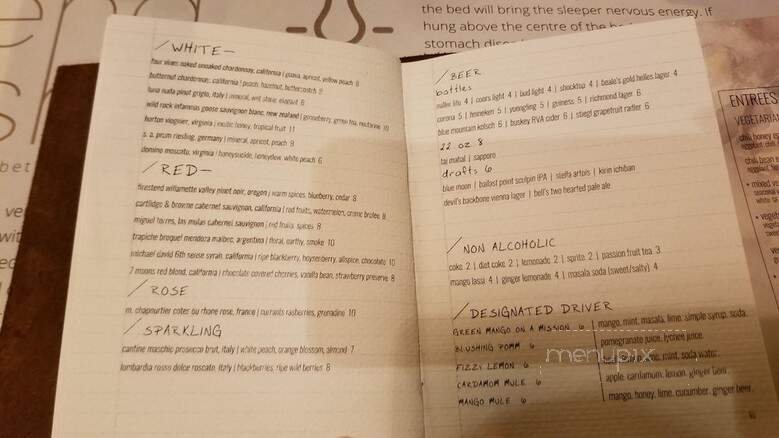 the bed will bring the sleeper nervous energy. If
hung above the centre of the
stomach
/ WHITE—
four vines naked unoaked chardonnay, california | guava, apricot, yellow peach 8
butternut chardonnay, california | peach, hazelnut, butterscotch 8
luna nuda pinot grigio, italy | mineral, wet stone, elegant 8
wild rock infamous goose sauvignon blanc, new zealand | gooseberry, green tea, nectarine 10
horton viognier, virginia | exotic honey, tropical fruit 11
s. a. prum riesling, germany | mineral, apricot, peach 9
domino moscato, virginia | honeysuckle, honeydew, white peach 6
/ RED—
firesteed willamette valley pinot noir, oregon | warm spices, blueberry, cedar 8
cartlidge & browne cabernet sauvignon, california | red fruits, watermelon, creme brulee 8
miguel torres, las mulas cabernet sauvignon | red fruits, spices 8
trapiche broquel mendoza malbec, argentina | floral, earthy, smoke 10
michael david 6th sense syrah, california | ripe blackberry, boysenberry, allspice, chocolate 10
7 moons red blend, california | chocolate covered cherries, vanilla bean, strawberry preserve 8
/ ROSE
m. chapoutier cotes du rhone rose, france | currants rasberries, grenadine 10
/ SPARKLING
cantine maschio prosecco brut, italy | white peach, orange blossom, almond 7
lombardia rosso dolce roscato, italy | blackberries, ripe wild berries 8
/ BEER
bottles
miller lite 4 | coors light 4 | bud light 4 | shocktop 4 | beale's gold helles lager 4
corona 5 | heineken 5 | yuengling 5 | guiness 5 | richmond lager 6
blue mountain kolsch 6 | buskey RVA cider 6 | stiegl grapefruit radler 6
22 oz 8
taj mahal | sapporo
drafts 6
blue moon | ballast point sculpin IPA | stella artois | kirin ichiban
devil's backbone vienna lager | bell's two hearted pale ale
/ NON ALCOHOLIC
coke 2 | diet coke 2 | lemonade 2 | sprite 2 | passion fruit tea 3
mango lassi 4 | ginger lemonade 4 | masala soda (sweet/salty) 4
/ DESIGNATED DRIVER
GREEN MANGO ON A MISSION 6 | mango, mint, masala, lime, simple syrup, soda
BLUSHING POMM 6 | pomegranate juice, lychee juice
FIZZY LEMON 6 | mint, soda water
CARDAMOM MULE 6 | apple, cardamum, lemon, ginger beer
MANGO MULE 6 | mango, honey, lime, cucumber, ginger beer
menupix
ENTREES
VEGETARIAN
chili honey
chili bean
• mixed
• veget